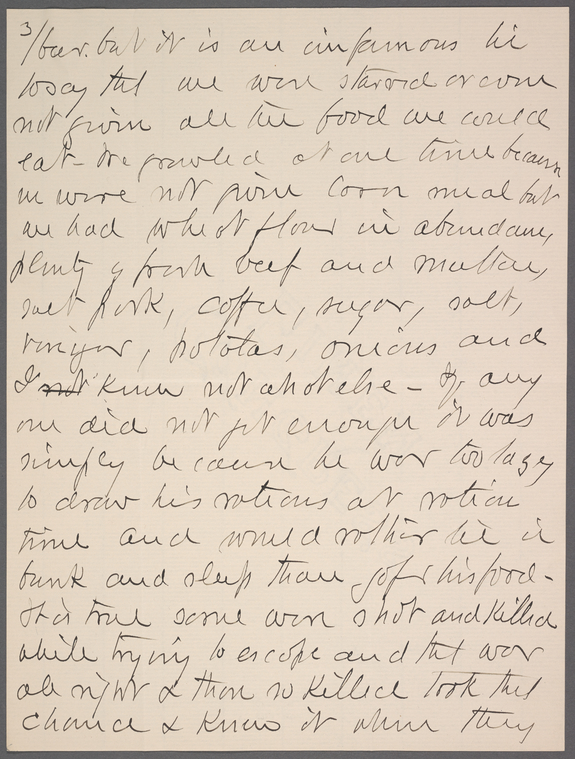 3/
beer. but it is an infamous lie
to say tht we were starved or even
not given all the food we could
eat - We growled at one time because
we were not given Corn meal but
we had wheat flour in abundance,
plenty of fresh beef and mutton,
salt pork, coffee, sugar, salt,
vinigar, potatoes, onions and
I not know not what else - If any
one did not get enough it was
simply because he was too lazey
to draw his rations at ration
time and would rather lie in
bunk and sleep than go for his food -
It is true some were shot and killed
while trying to escape and tht was
all right & those so killed took tht
chance & knew it when they